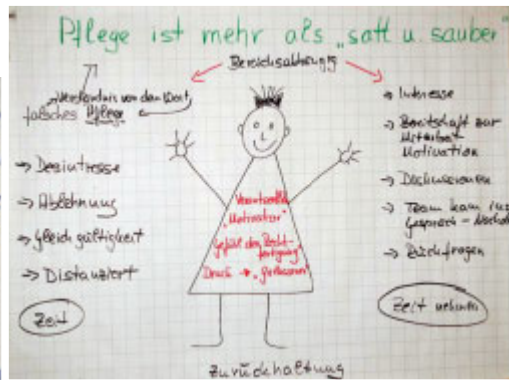 Pflege ist mehr als „satt u. sauber"
Bereichsabhängig
Verständnis von dem Wort
falsches Pflege
→ Desintresse
→ Ablehnung
→ gleichgültigkeit
→ Distanziert
Zeit
Verantwortl.
„Motivator"
Gefühl der Recht-
fertigung
Druck →
Zurückhaltung
→ Interesse
→ Bereitschaft zur
Mitarbeit
Motivation
→ Diskussionen
→ Team kam ins
Gespräch -
→ Rückfragen
Zeit nehmen